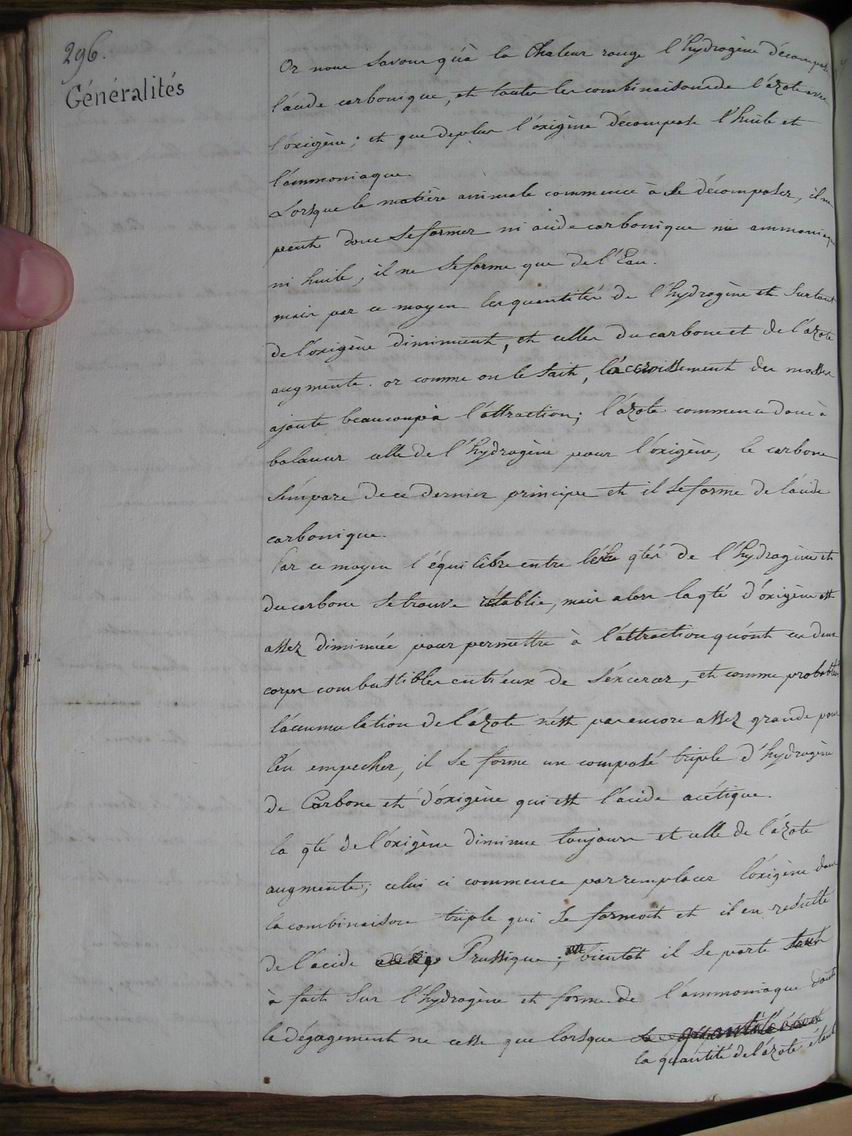 296.
Généralités
Or nous Savons qu'à la Chaleur rouge l'hydrogène décompose
l'acide carbonique, et toutes les combinaisons de l'azote avec
l'oxigène; et que deplus l'oxigène décompose l'huile et
l'ammoniaque.
Lorsque la matière animale commence à se décomposer, il ne
peut donc se former ni acide carbonique ni ammoniaque
ni huile, il ne se forme que de l'Eau.
mais par ce moyen les quantités de l'hydrogène et surtout
de l'oxigène diminuent, et celles du carbone et de l'azote
augmente. or comme on le sait, l'accroissement des masses
ajoute beaucoup à l'attraction; l'azote commence donc à
balancer celle de l'hydrogène pour l'oxigène, le carbone
s'empare de ce dernier principe et il se forme de l'acide
carbonique.
Par ce moyen l'équilibre entre les qtés de l'hydrogène et
du carbone se trouve rétablie, mais alors la qté d'oxigène est
assez diminuée pour permettre à l'attraction qu'ont ces deux
corps combustibles entr'eux de s'éxercer, et comme probablt
l'accumulation de l'azote n'est pas encore assez grande pour
l'en empecher, il se forme un composé triple d'hydrogène
de Carbone et d'oxigène qui est l'acide acétique.
la qté de l'oxigène diminue toujours et celle de l'azote
augmente; celui ci commence par remplacer l'oxigène dans
la combinaison triple qui se formoit et il en resulte
de l'acide Prussique; bientôt il se porte tout
à fait sur l'hydrogène et forme de l'ammoniaque dont
le dégagement ne cesse que lorsque
la quantité de l'azote étant